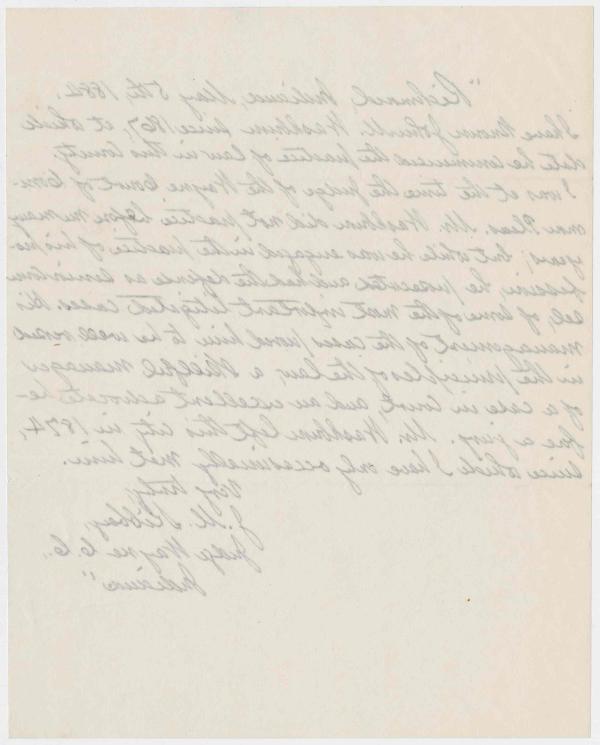 "Richmond, Indiana, May 5th, 1882.
I have known John M. Washburn since 1867, at which
date he commenced the practice of law in this County.
I was at the time the judge of the Wayne Court of Com-
mon Pleas. Mr. Washburn did not practice before me many
years; but while he was engaged in the practice of his pro-
fession, he prosecuted and had the defense as
of some of the most important litigated cases. His
management of the cases proved him to be well versed
in the principles of the law, a skillful manager
of a case in Court, and an excellent advocate be-
fore a jury. Mr. Washburn left this city in 1874,
since which I have only occasionally met him.
Very truly,
J. H. Kibbey,
Judge Wayne C. C.,
Indiana"